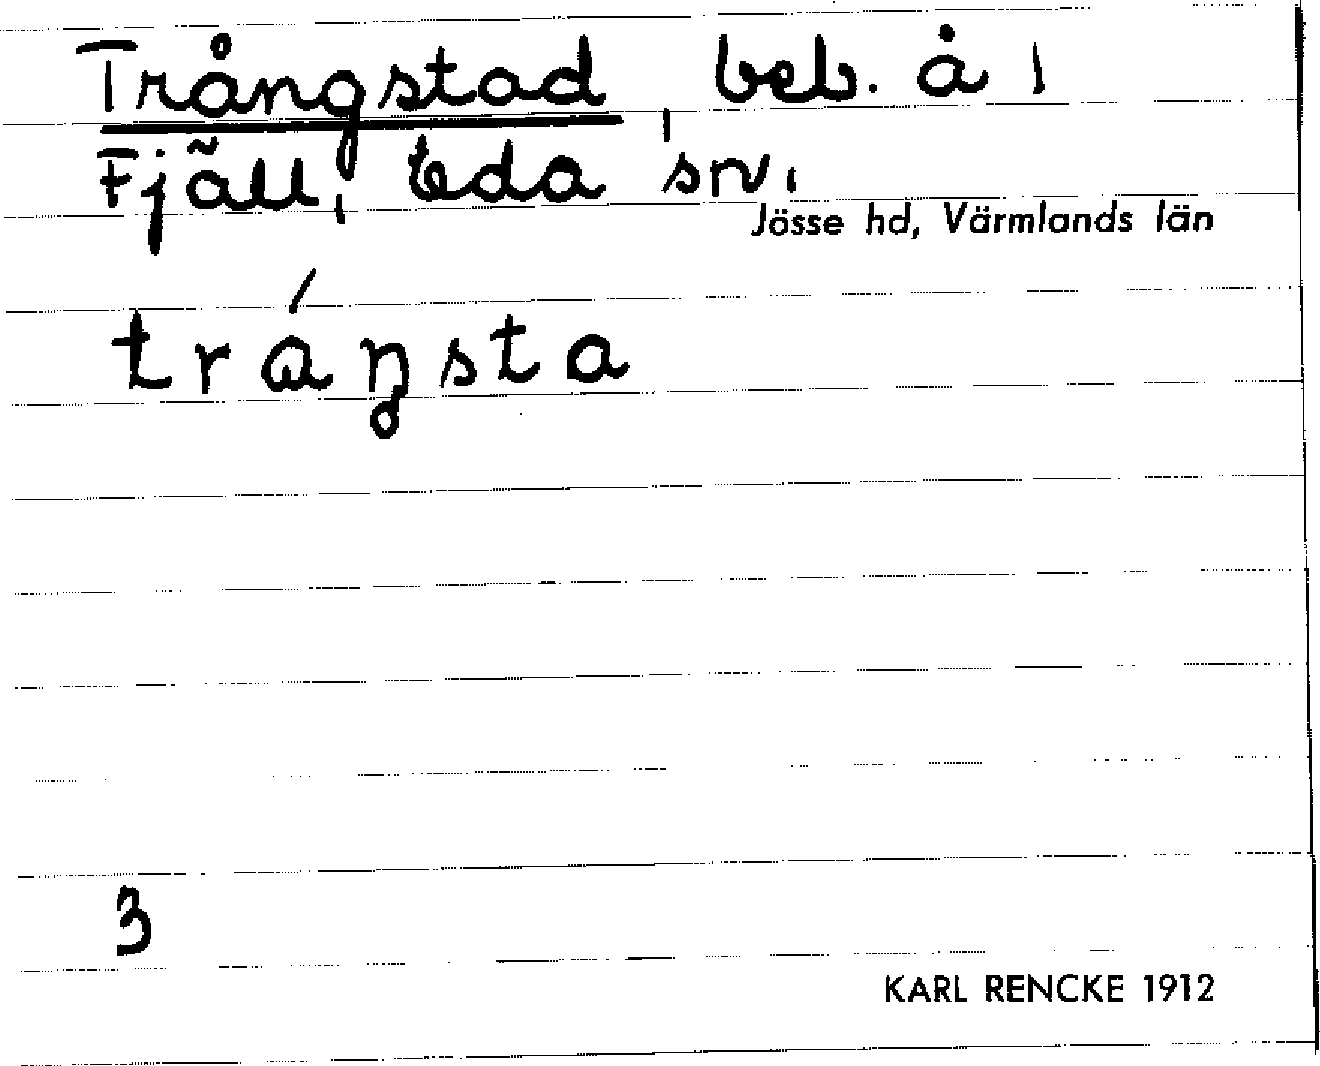 Trångstad, beb. å 1
Fjäll, Eda sn.
Jösse hd, Värmlands län
trǻŋsta
3
KARL RENCKE 1912